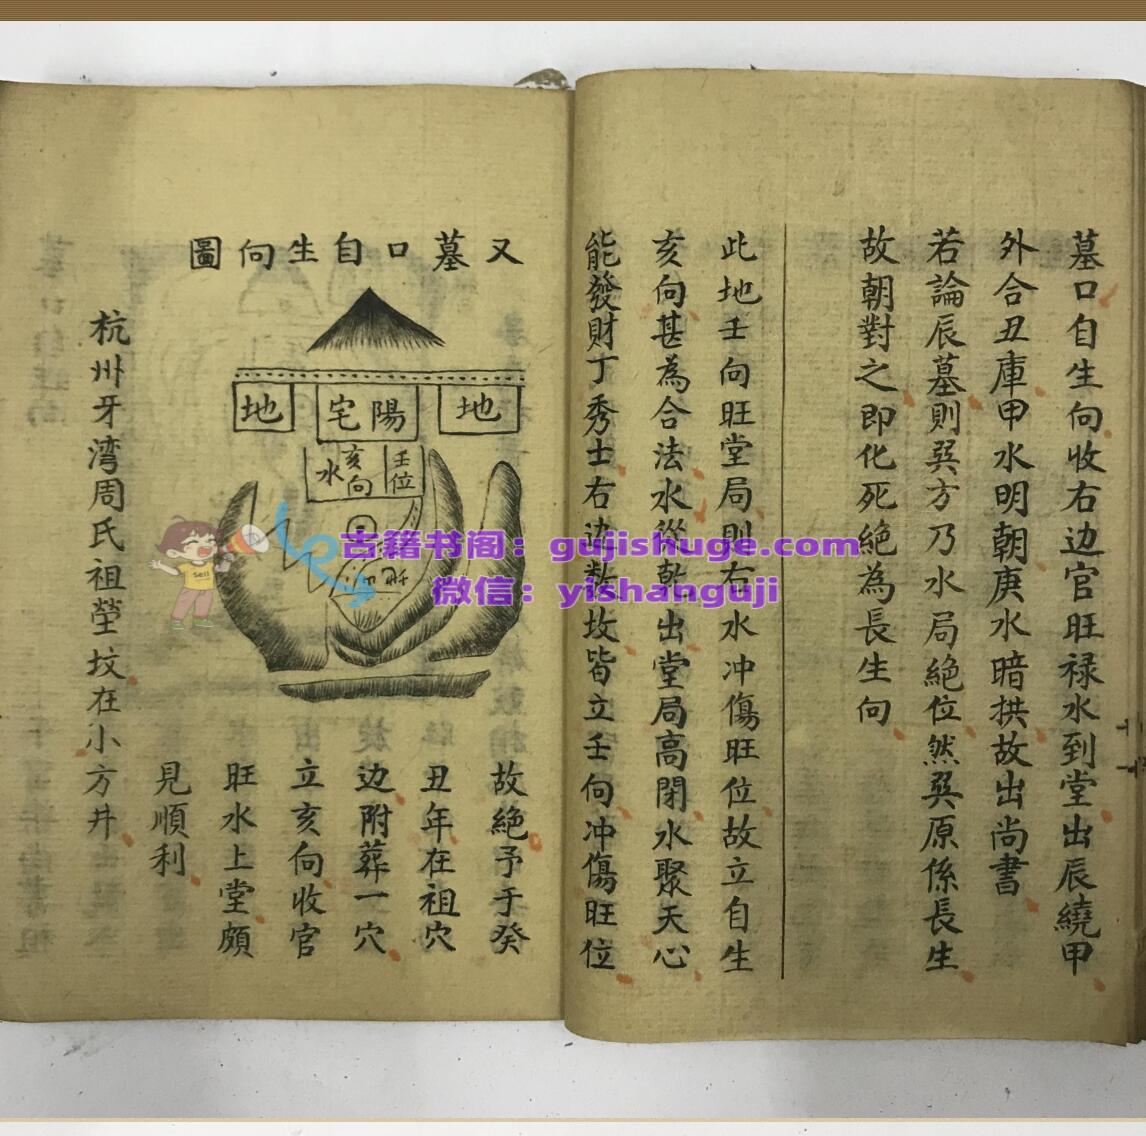 墓口自生向收右边官旺禄水到堂出辰繞甲
外合丑庫甲水明朝庚水暗拱故出尚書
若論辰墓則巽方乃水局絕位然巽原係長生
故朝對之即化死絕為長生向
此地壬向旺堂局則右水冲傷旺位故立自生
亥向甚為合法水從乾出堂局高閉水聚天心
能發財丁秀士右边数坟皆立壬向冲傷旺位
又墓口自生向圖
地
陽宅
地
壬位
亥向
水
故絕予于癸
丑年在祖穴
边附葬一穴
立亥向收官
旺水上堂頗
見順利
杭州牙湾周氏祖塋坟在小方井
古籍书阁：gujishuge.com
微信：yishanguji
sell